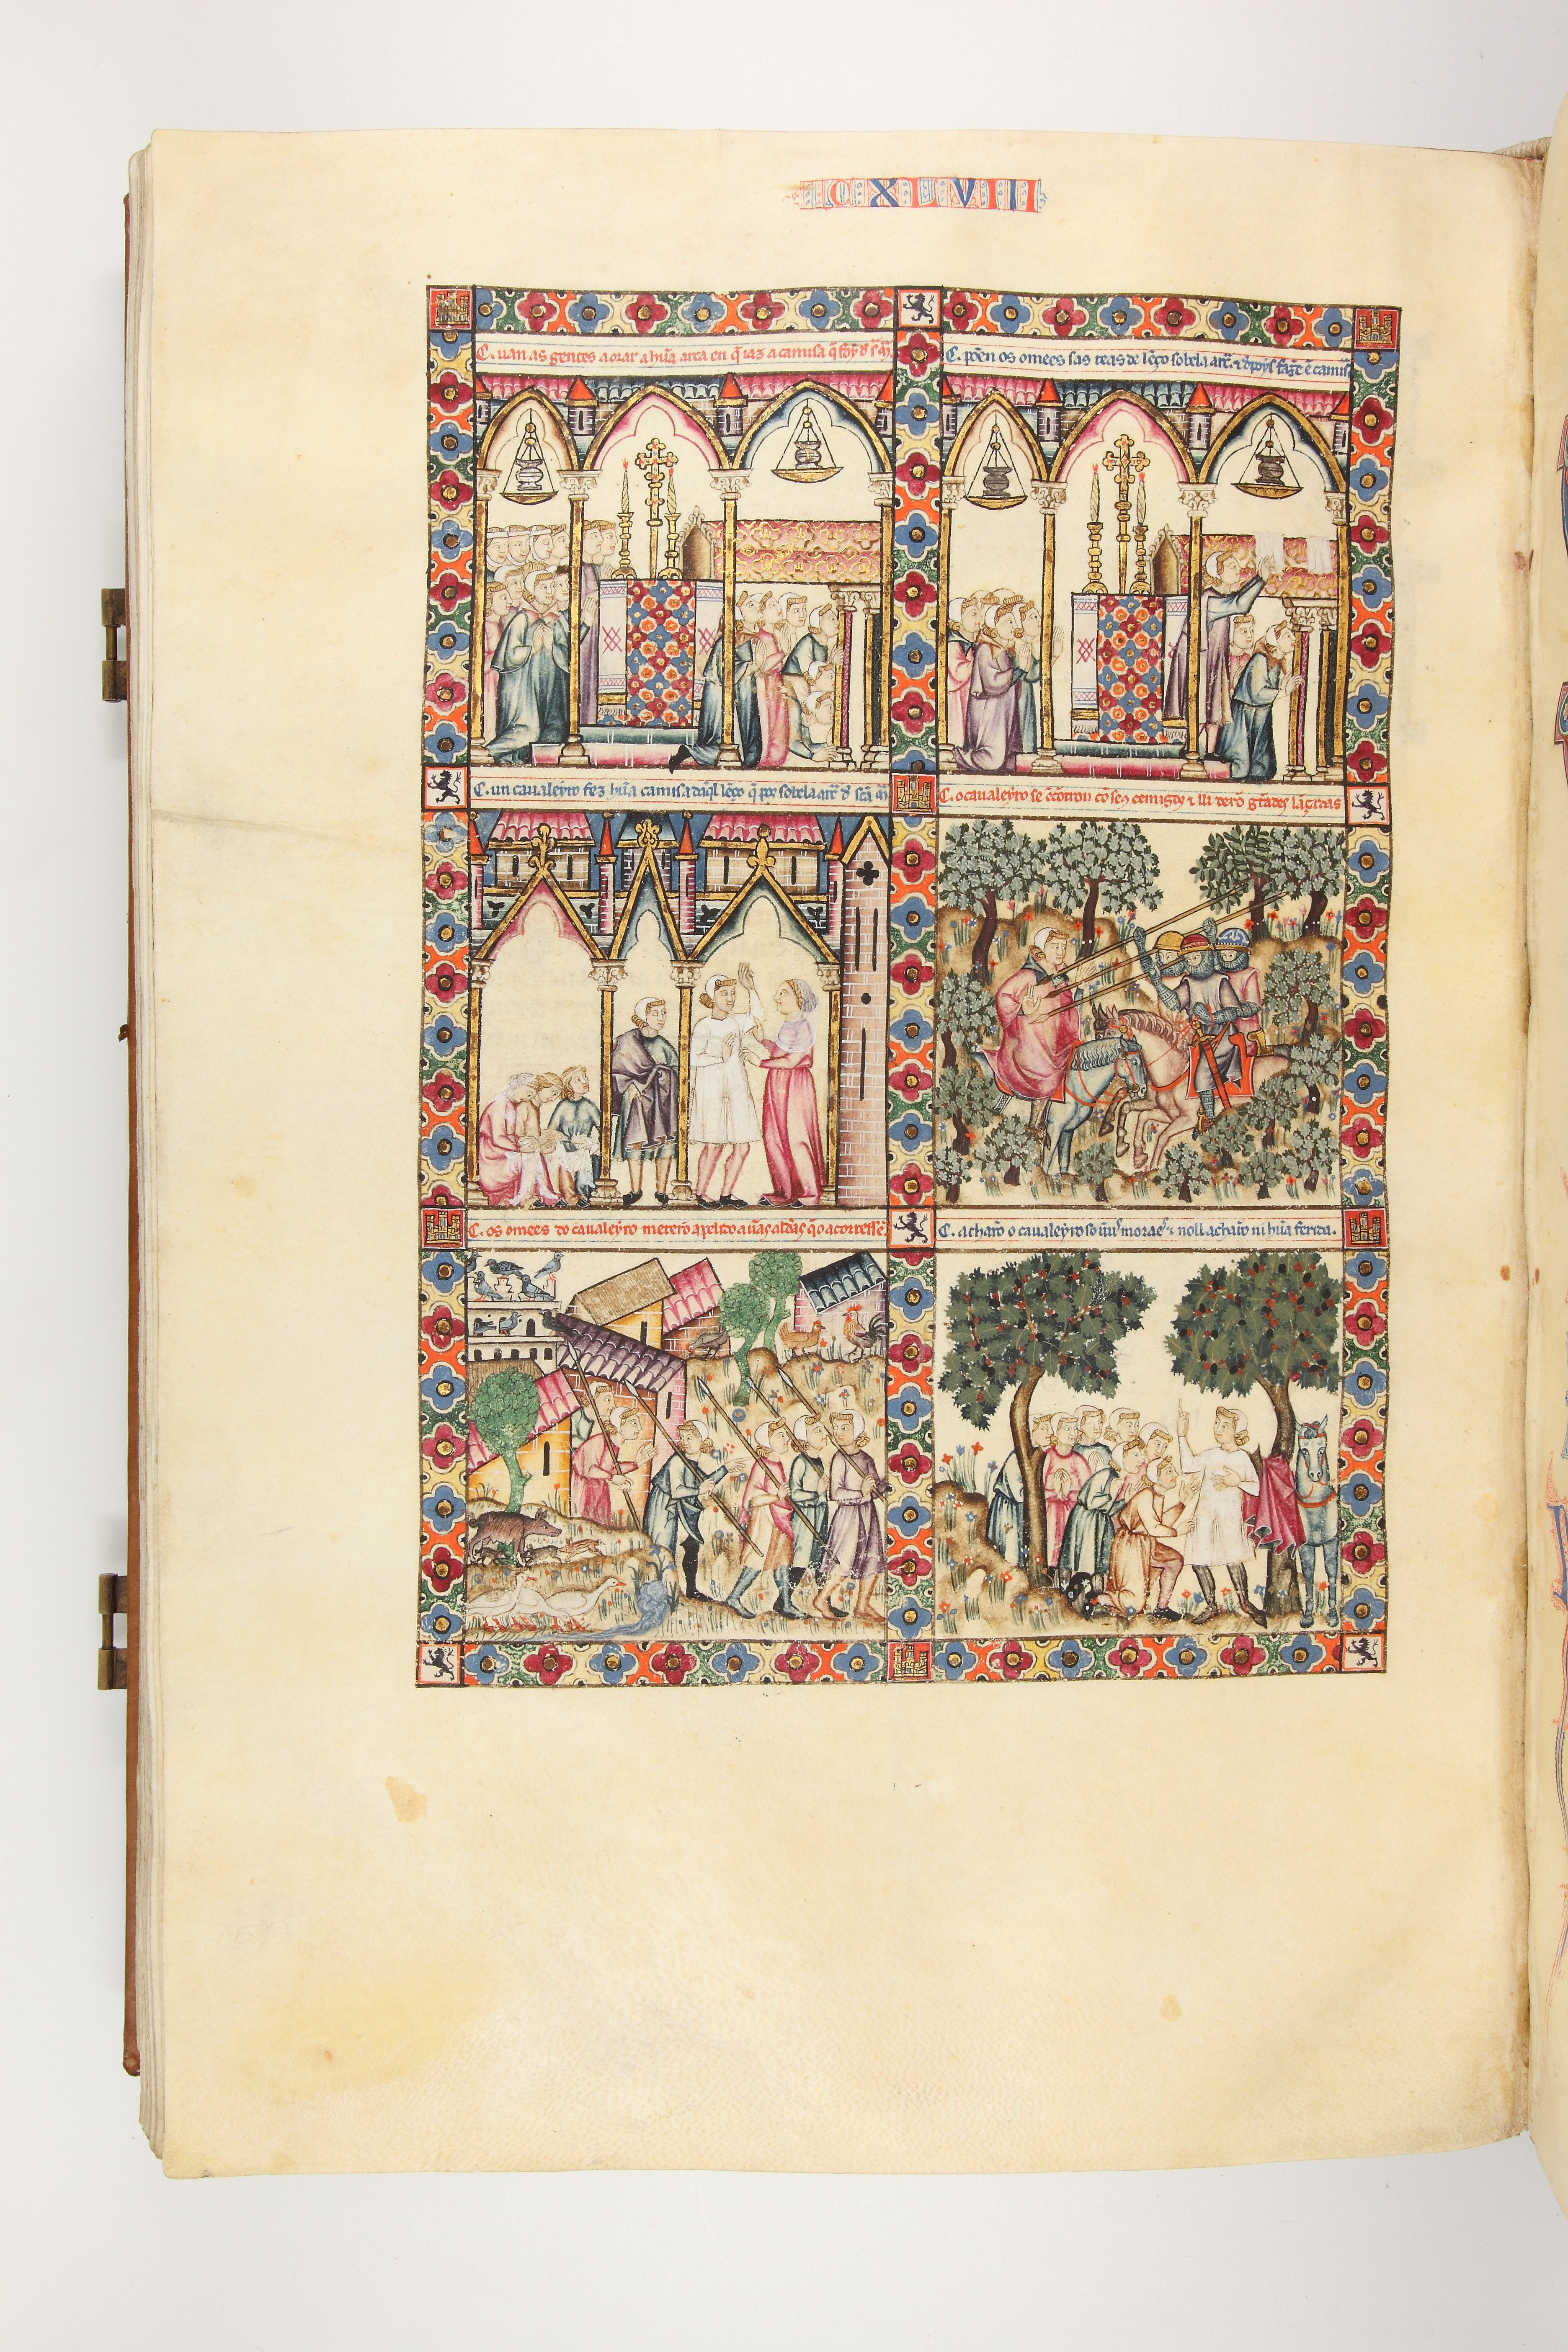 CXLVIII
C. uan as gentes a orar a hũa arca en q̃ iaz a camisa q̃ foy d' s. m̃.
C. põen os omees sas teas de lẽço sobela arc̃. ⁊ depoys fazẽ ẽ camis̃
C. un caualeyro fez hũa camisa daq̃l lẽço q̃ pos sobela arc̃ d' sc̃a m̃
C. o caualeyro se ẽcõtrou cõ se9 eemigos ⁊ lli derõ grãdes lãçadas
C. os omees do caualeyro meterõ apelido a ũas aldẽas q̃ o acorressẽ.
C. acharõ o caualeyro so ũu9 moraes ⁊ noll acharõ nihũa ferida.